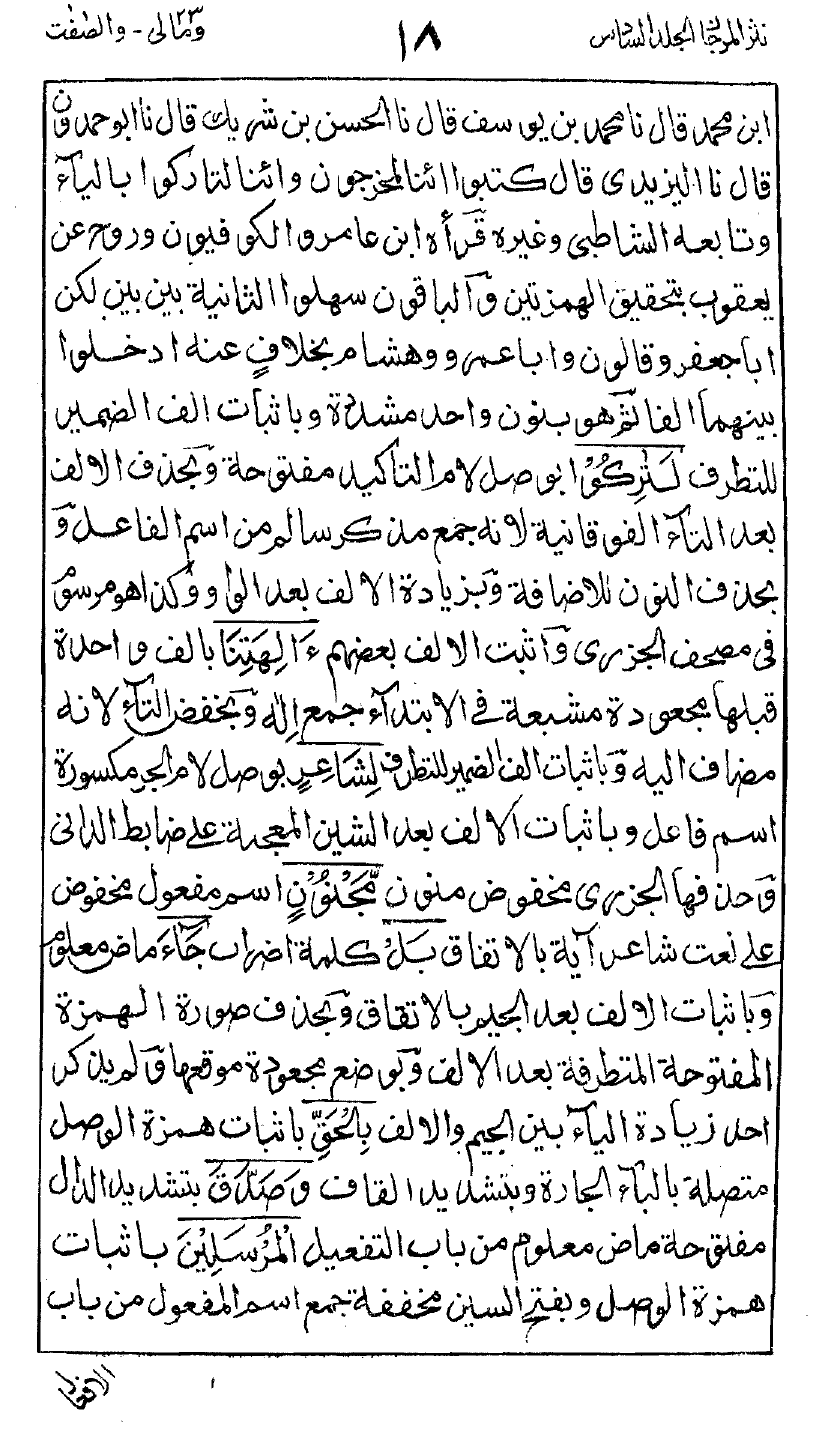 نثر المرجان المجلد السادس
١٨
ومالى ٢٣ - والصّٰفّٰت
ابن محمد قال نا محمد بن يوسف قال نا الحسن بن شريك قال نا ابو حمدون
قال نا اليزيدى قال كتبوا ائنا لمخرجون وائنا لتاركوا بالياۤء
وتابعه الشاطبى وغيره قرأه ابن عامر والكوفيون وروح عن
يعقوب بتحقيق الهمزتين وٓالباقون سهلوا الثانية بين بين لكن
ابا جعفر وقالون وابا عمرو وهشام بخلافٍ عنه ادخلوا
بينهما الفا ثم هو بنون واحد مشددة وباثبات الف الضمير
للتطرف لَتٰرِكُوْٓا بوصل لام التاكيد مفتوحة وٓبحذف الالف
بعد التاۤء الفوقانية لانه جمع مذكر سالم من اسم الفاعل وٓ
بحذف النون للاضافة وٓبزيادة الالف بعد الواو وٓكذا هو مرسوم
فى مصحف الجزرى وٓاثبت الالف بعضهم ءَالِهَتِنَا بالف واحدة
قبلها مجعودة مشبعة فى الابتداۤء جمع اِلٰه وٓبخفض التاۤء لانه
مضاف اليه وٓباثبات الف الضمير للتطرف لِشَاعِرٍ بوصل لام الجر مكسورة
اسم فاعل وباثبات الالف بعد الشين المعجمة على ضابط الدانى
وٓحذفها الجزرى مخفوض منون مَّجْنُوْنٍ اسم مفعول مخفوض
على نعت شاعر آية بالاتفاق بَلْ كلمة اضراب جَاۤءَ ماض معلوم
وٓباثبات الالف بعد الجيم بالاتفاق وٓبحذف صورة الهمزة
المفتوحة المتطرفة بعد الالف وٓبوضع مجعودة موقعها وٓلم يذكر
احد زيادة الياۤء بين الجيم والالف بِالْحَقِّ باثبات همزة الوصل
متصلة بالباۤء الجارة وبتشديد القاف وَصَدَّقَ بتشديد الدال
مفتوحة ماض معلوم من باب التفعيل الْمُرْسَلِيْنَ باثبات
همزة الوصل وبفتح السين مخففة جمع اسم المفعول من باب